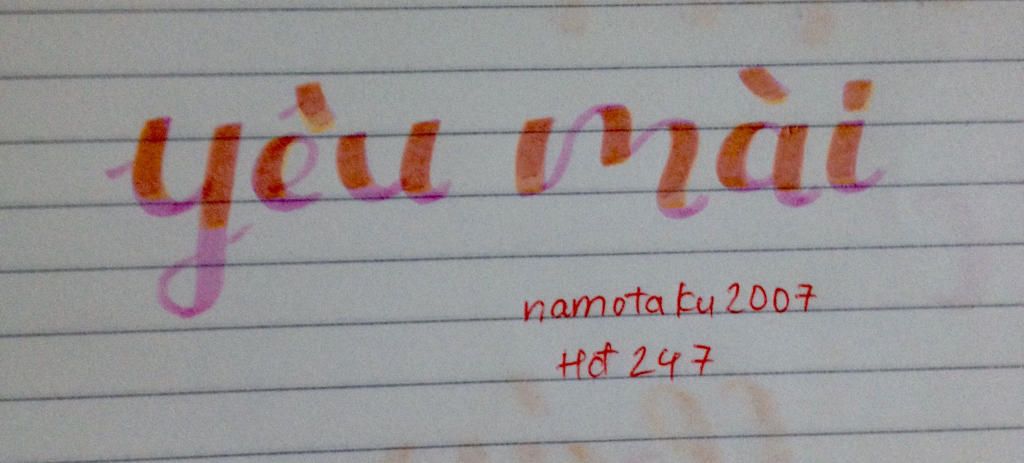 yêu mài
namotaku2007
Hot 247